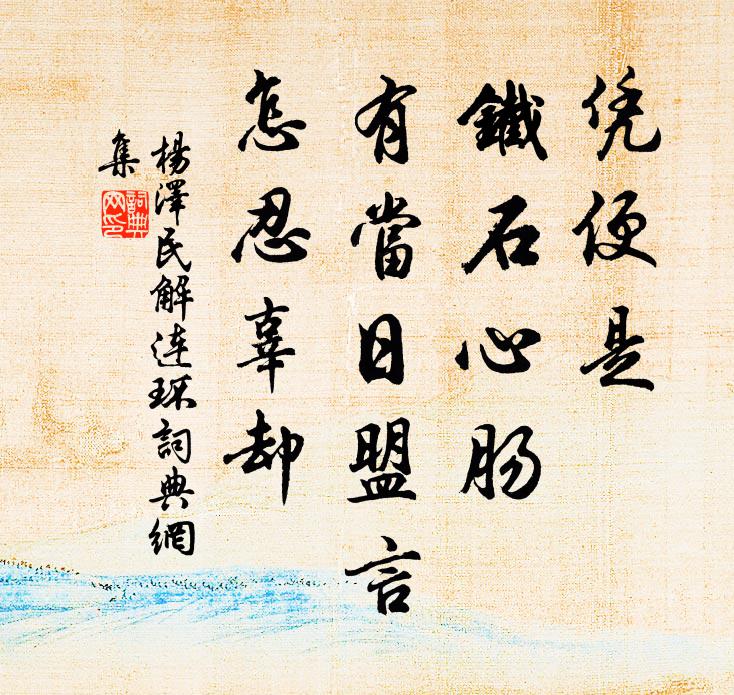 凭便是
鐵石心肠
有當日盟言
怎忍辜却
楊澤民解连环詞典網
集
詞典
网印